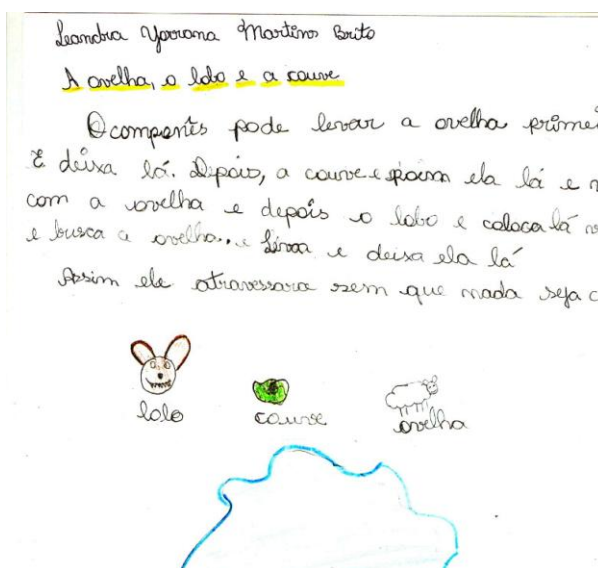 Leandra Yorrana Martins Brito
A ovelha, o lobo e a couve
O camponês pode levar a ovelha prime
E deixa lá. Depois, a couve e ela lá e
com a ovelha e depois o lobo e coloca lá
e busca a ovelha, e e deixa ela lá
Assim ele atravessara sem que nada seja c
lolo
couve
ovelha